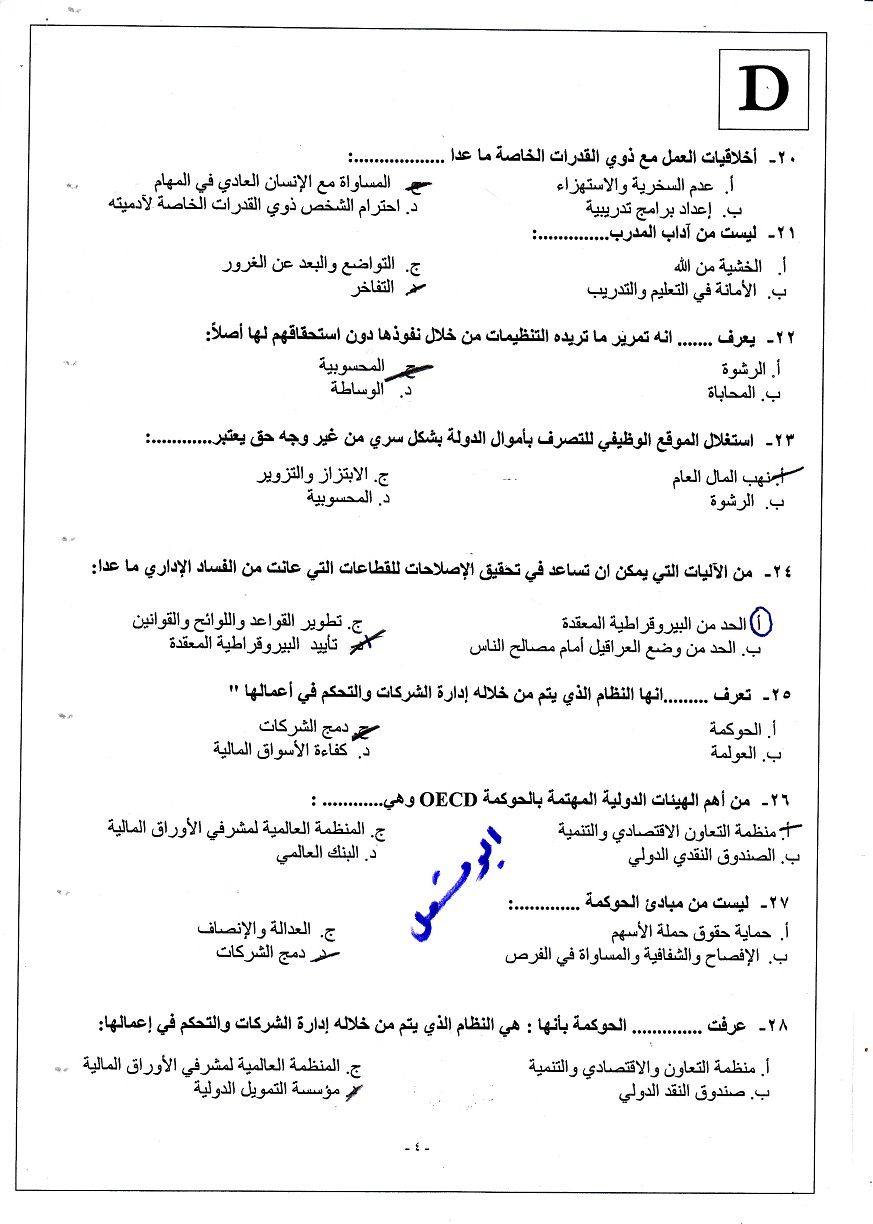 D
٢٠- أخلاقيات العمل مع ذوي القدرات الخاصة ما عدا ..................:
أ. عدم السخرية والاستهزاء
ج. المساواة مع الإنسان العادي في المهام
ب. إعداد برامج تدريبية
د. احترام الشخص ذوي القدرات الخاصة لآدميته
٢١- ليست من آداب المدرب..............:
أ. الخشية من الله
ج. التواضع والبعد عن الغرور
ب. الأمانة في التعليم والتدريب
د. التفاخر
٢٢- يعرف ....... انه تمرير ما تريده التنظيمات من خلال نفوذها دون استحقاقهم لها أصلاً:
أ. الرشوة
ج. المحسوبية
ب. المحاباة
د. الوساطة
٢٣- استغلال الموقع الوظيفي للتصرف بأموال الدولة بشكل سري من غير وجه حق يعتبر............:
أ. نهب المال العام
ج. الابتزاز والتزوير
ب. الرشوة
د. المحسوبية
٢٤- من الآليات التي يمكن ان تساعد في تحقيق الإصلاحات للقطاعات التي عانت من الفساد الإداري ما عدا:
أ الحد من البيروقراطية المعقدة
ج. تطوير القواعد واللوائح والقوانين
ب. الحد من وضع العراقيل أمام مصالح الناس
د. تأييد البيروقراطية المعقدة
٢٥- تعرف .........انها النظام الذي يتم من خلاله إدارة الشركات والتحكم في أعمالها "
أ. الحوكمة
ج. دمج الشركات
ب. العولمة
د. كفاءة الأسواق المالية
٢٦- من أهم الهيئات الدولية المهتمة بالحوكمة OECD وهي............ :
أ. منظمة التعاون الاقتصادي والتنمية
ج. المنظمة العالمية لمشرفي الأوراق المالية
ب. الصندوق النقدي الدولي
د. البنك العالمي
٢٧- ليست من مبادئ الحوكمة .............:
أ. حماية حقوق حملة الأسهم
ج. العدالة والإنصاف
ب. الإفصاح والشفافية والمساواة في الفرص
د. دمج الشركات
٢٨- عرفت .............. الحوكمة بأنها : هي النظام الذي يتم من خلاله إدارة الشركات والتحكم في إعمالها:
أ. منظمة التعاون والاقتصادي والتنمية
ج. المنظمة العالمية لمشرفي الأوراق المالية
ب. صندوق النقد الدولي
د. مؤسسة التمويل الدولية
- ٤ -